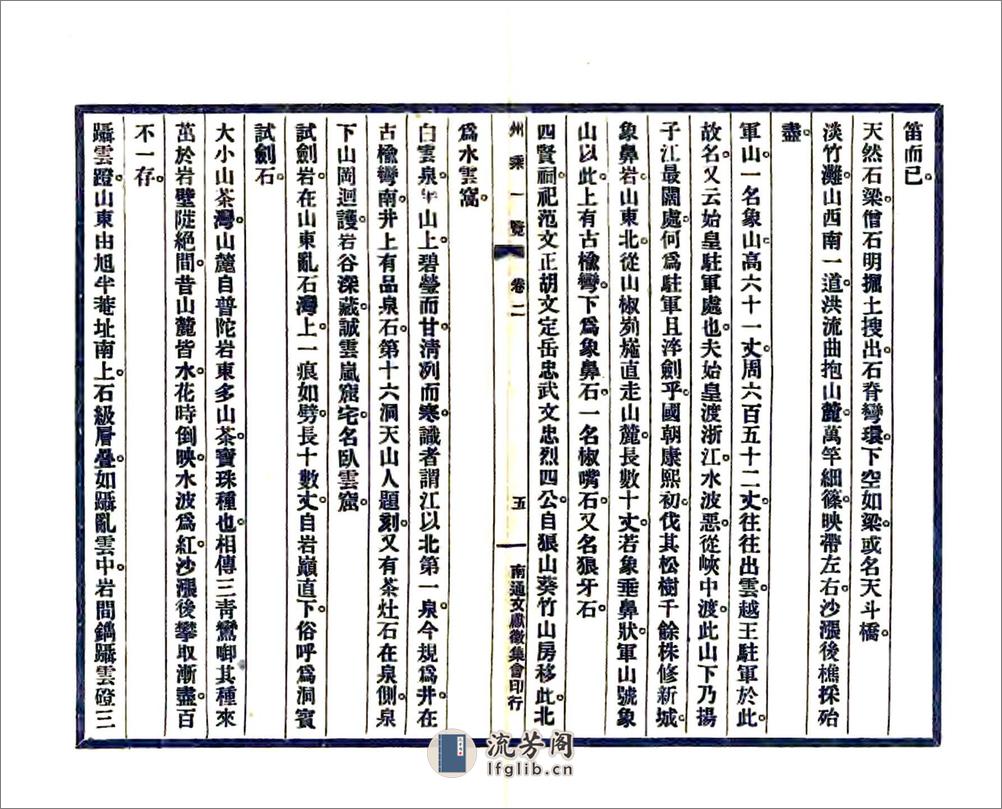 笛而已。
天然石梁。僧石明掘土搜出。石脊彎環。下空如梁。或名天斗橋。
淡竹灘。山西南一道。洪流曲抱山麓。萬竿細篠。映帶左右。沙漲後樵採殆
盡。
軍山一名象山。高六十一丈。周六百五十二丈。往往出雲。越王駐軍於此。
故名。又云始皇駐軍處也。夫始皇渡浙江。水波惡。從峽中渡。此山下乃揚
子江最闊處。何爲駐軍且淬劍乎。國朝康熙初。伐其松樹千餘株修新城。
象鼻岩。山東北。從山椒峛崺直走山麓。長數十丈。若象垂鼻狀。軍山號象
山以此。上有古楡彎。下爲象鼻石。一名椒嘴石。又名狼牙石。
四賢祠。祀范文正胡文定岳忠武文忠烈四公。自狼山葵竹山房移此。北
爲水雲窩。
白雲泉。半山上。碧瑩而甘。清冽而寒。識者謂江以北第一泉。今規爲井。在
古楡彎南。井上有品泉石。第十六洞天山人題刻。又有茶灶石在泉側。泉
下山岡迴護。岩谷深藏。誠雲嵐窟宅。名臥雲窟。
試劍岩。在山東亂石灣上。一痕如劈。長十數丈。自岩巔直下。俗呼爲洞賓
試劍石。
大小山茶灣。山麓自普陀岩東多山茶。寶珠種也。相傳三靑鸞啣其種來
茁於岩壁陡絕間。昔山麓皆水。花時倒映。水波爲紅。沙漲後攀取漸盡。百
不一存。
躡雲蹬。山東由旭半菴址南上。石級層疊。如躡亂雲中。岩間鐫躡雲磴三
州乘一覽
卷二
五
南通文獻徵集會印行
流芳阁
lfglib.cn